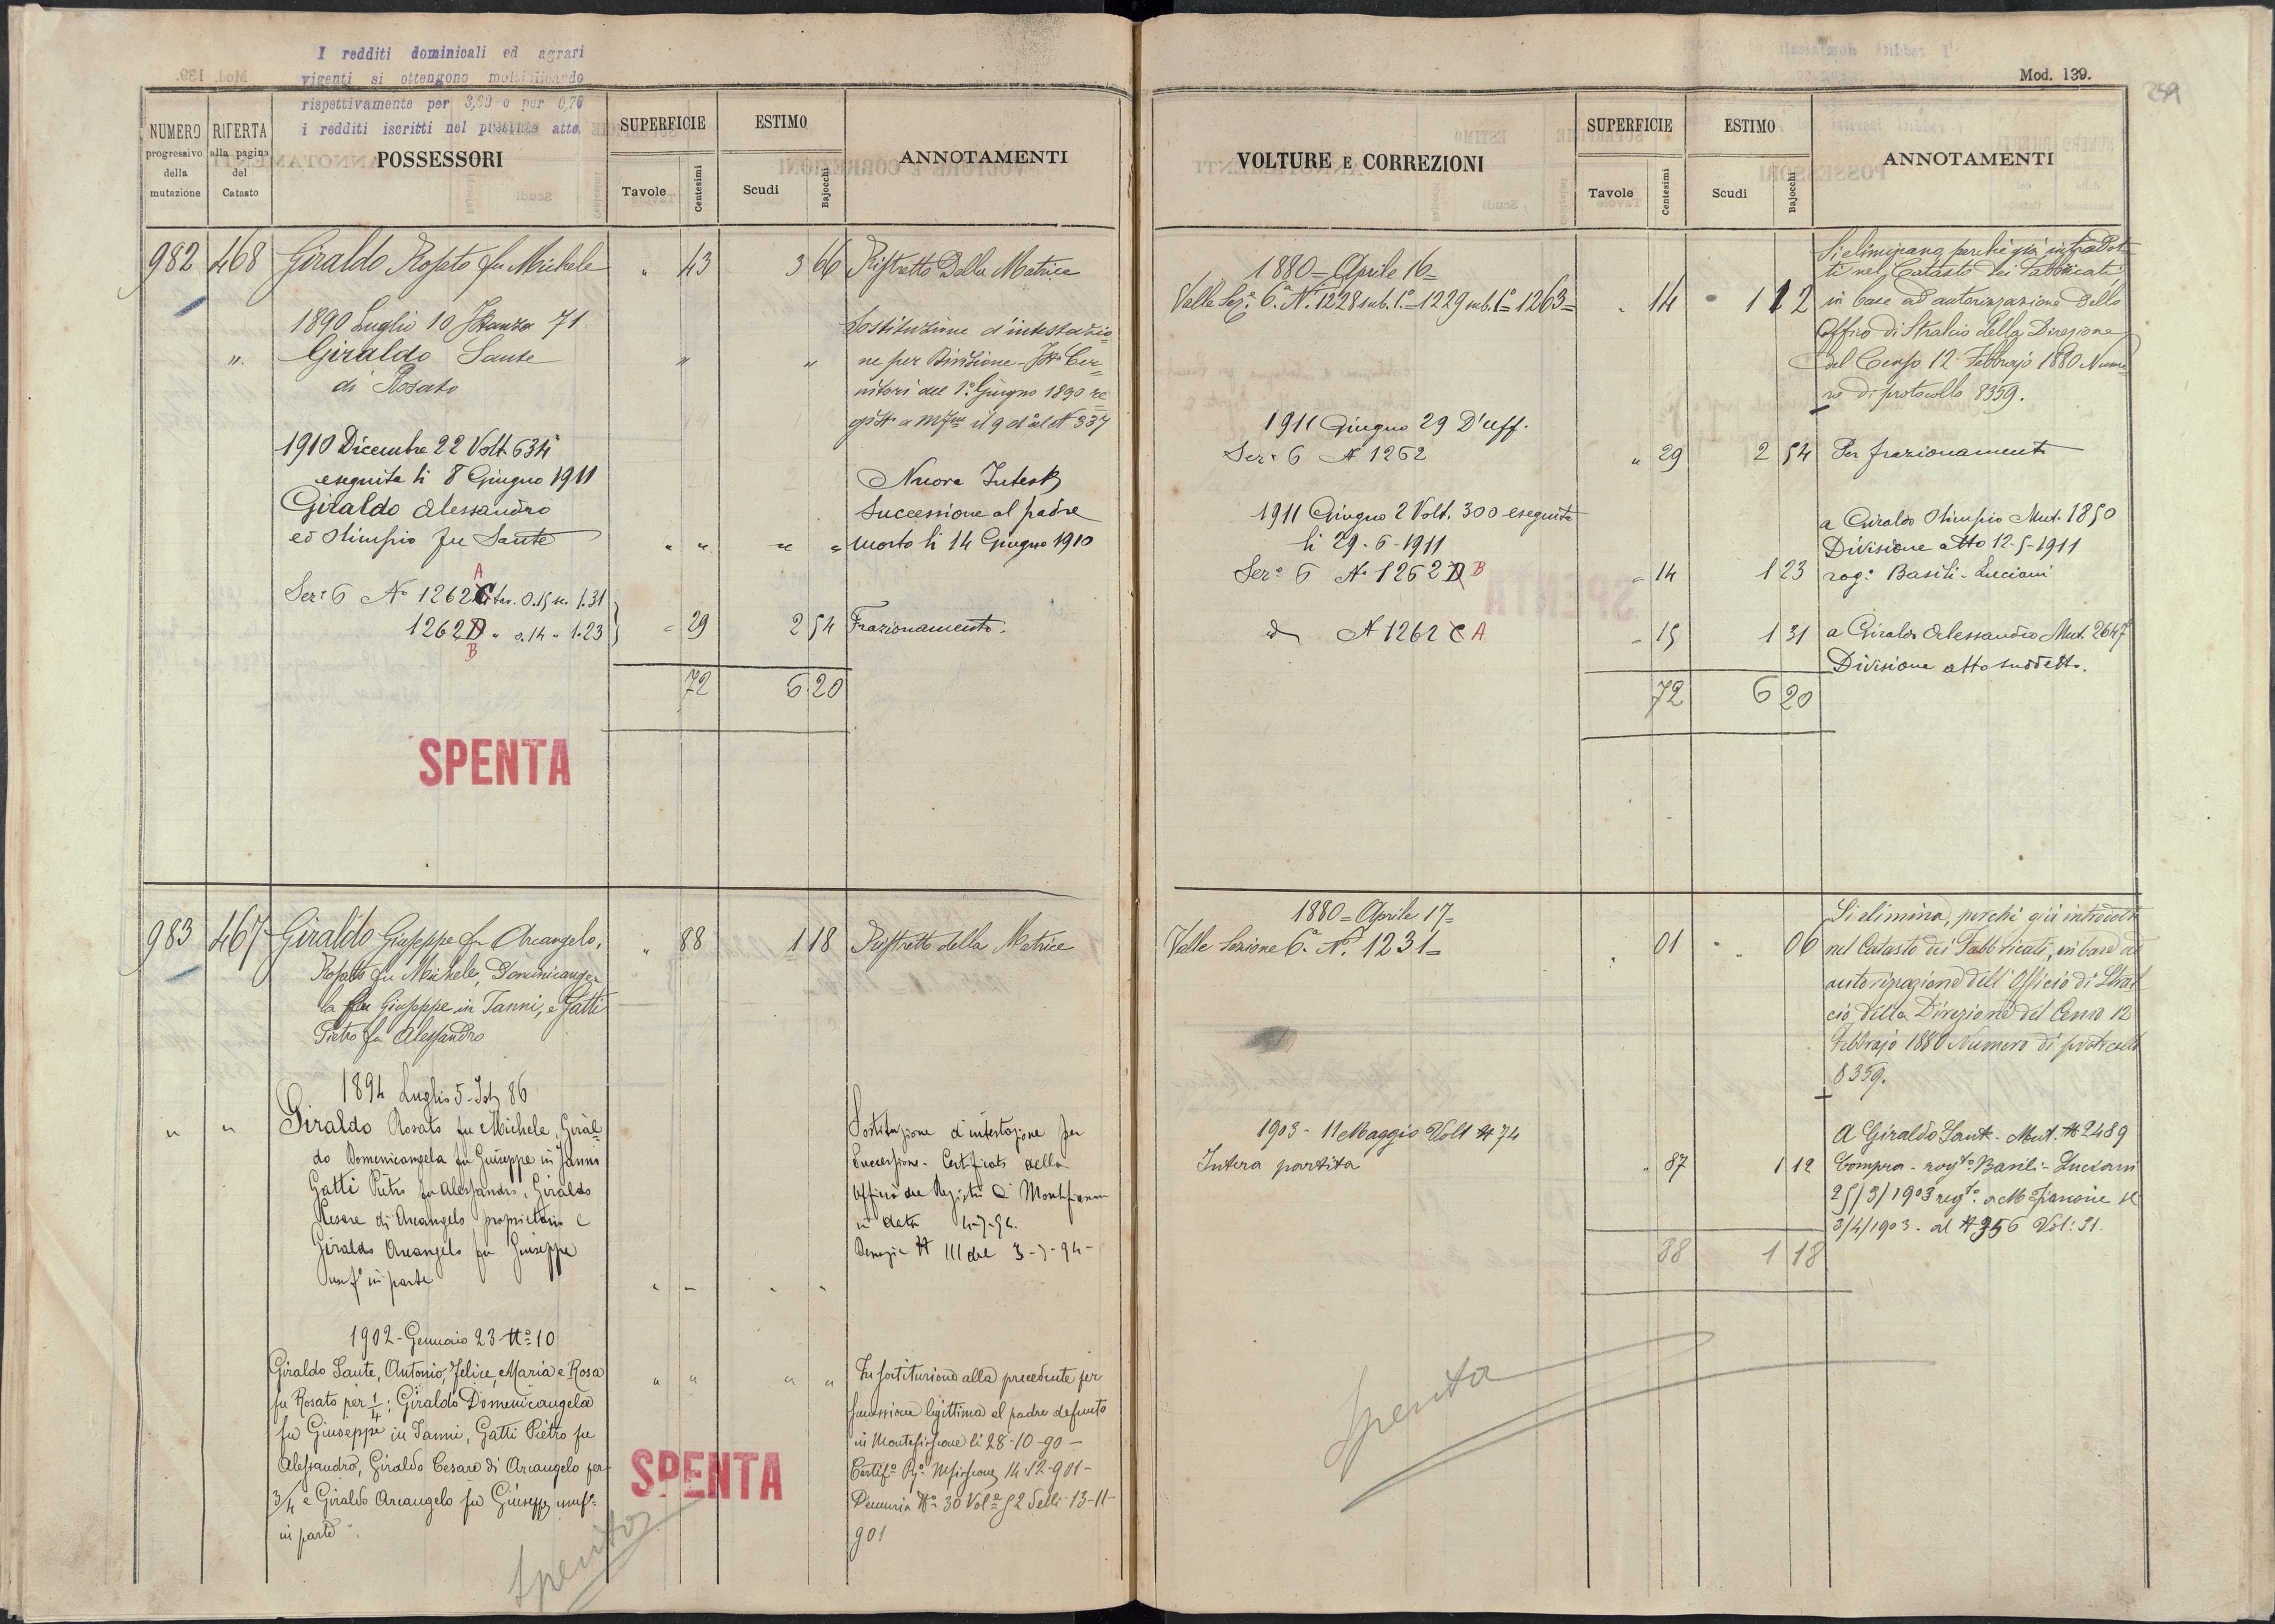 I redditi dominicali ed agrari
vigenti si ottengono moltiplicando
rispettivamente per 3,60 e per 0,70
i redditi iscritti nel presente atto.
NUMERO
progressivo
della
mutazione
RIFERTA
alla pagina
del
Catasto
POSSESSORI
SUPERFICIE
Tavole
Centesimi
ESTIMO
Scudi
Bajocchi
ANNOTAMENTI
982 468 Giraldo Rosato fu Michele " 43 3 66 Ristretto della Matrice
1890 Luglio 10 Istanza 71
". Giraldo Sante " "
di Rosato
Sostituzione d'intestazio
ne per Divisione - Cer
nitori del 1° Giugno 1890 re
il 9 d° al N 337
1910 Dicembre 22 Volt. 634
eseguita li 8 Giugno 1911
Giraldo Alessandro
ed Olimpio fu Sante " " " "
Nuova Intest
Successione al padre
morto li 14 Giugno 1910
A
Sez. 6 No 1262 C tav. 0.15 sc. 1.31
1262 D " 0.14 " 1.23 " 29 2 54 Frazionamento.
B
72 6 20
SPENTA
983 467 Giraldo Giuseppe fu Arcangelo, " 88 1 18 Ristretto della Matrice
Rosato fu Michele, Domenicange-
la fu Giuseppe in Tanni, e Gatti
Pietro fu Alessandro
1894 Luglio 5 - Ist 86
" " Giraldo Rosato fu Michele, Giral=
do Domenicangela fu Giuseppe in Janni
Gatti Pietro fu Alessandro, Giraldo
Cesare di Arcangelo proprietari e
Giraldo Arcangelo fu Giuseppe
usuf° in parte " " " "
Sostituzione d'intestazione per
Successione - Certificato della
Ufficio del Registro di Montefiascone
in data 4-7-94.
Denuncia N 111 del 3-7-94-
1902 - Gennaio 23 - N° 10
Giraldo Sante, Antonio, Felice, Maria e Rosa " " " "
fu Rosato per 1/4; Giraldo Domenicangela
fu Giuseppe in Tanni, Gatti Pietro fu
Alessandro, Giraldo Cesare di Arcangelo per
3/4 e Giraldo Arcangelo fu Giuseppe usuf°
in parte
In sostituzione alla precedente per
successione legittima al padre defunto
in Montefiascone li 28-10-90 -
Certif° Rg° 14-12-901 -
Denuncia N° 30 Vol° 52 delli 13-11-
901
SPENTA
Spenta
Mod. 139.
259
VOLTURE E CORREZIONI
SUPERFICIE
Tavole
Centesimi
ESTIMO
Scudi
Bajocchi
ANNOTAMENTI
1880 = Aprile 16 =
Valle Sez. 6.a N.i 1228 sub. 1.° = 1229 sub. 1° = 1263 = " 14 1 12
Si eliminano perchè già introdot
ti nel Catasto dei Fabbricati
in base ad autorizzazione dello
Officio di Stralcio della Direzione
del Censo 12 Febbrajo 1880 Nume
ro di protocollo 8359.
1911 Giugno 29 D'uff.
Sez. 6 N 1262 " 29 2 54 Per frazionamento
1911 Giugno 2 Volt. 300 eseguita
li 29-6-1911
Sez. 6 No 1262 D B " 14 1 23
a Giraldo Olimpio Mut. 1850
Divisione atto 12-5-1911
rog. Basili-Luciani
id N 1262 C A " 15 1 31 a Giraldo Alessandro Mut. 2647
Divisione atto suddetto.
72 6 20
1880 = Aprile 17 =
Valle Sezione 6.a N.° 1231 = " 01 " 06
Si elimina, perchè già introdotto
nel Catasto dei Fabbricati, in base ad
autorizzazione dell'Officio di Stral
cio della Direzione del Censo 12
Febbrajo 1880 Numero di protocollo
8359.
1903 - 11 Maggio Volt N 74
Intera partita " 87 1 12
A Giraldo Sante - Mut. N 2489
Compra - rog.to Basili-Luciani
25/3/1903 reg.to a Mefiascone il
3/4/1903 - al N 356 Vol: 31.
88 1 18
Spenta